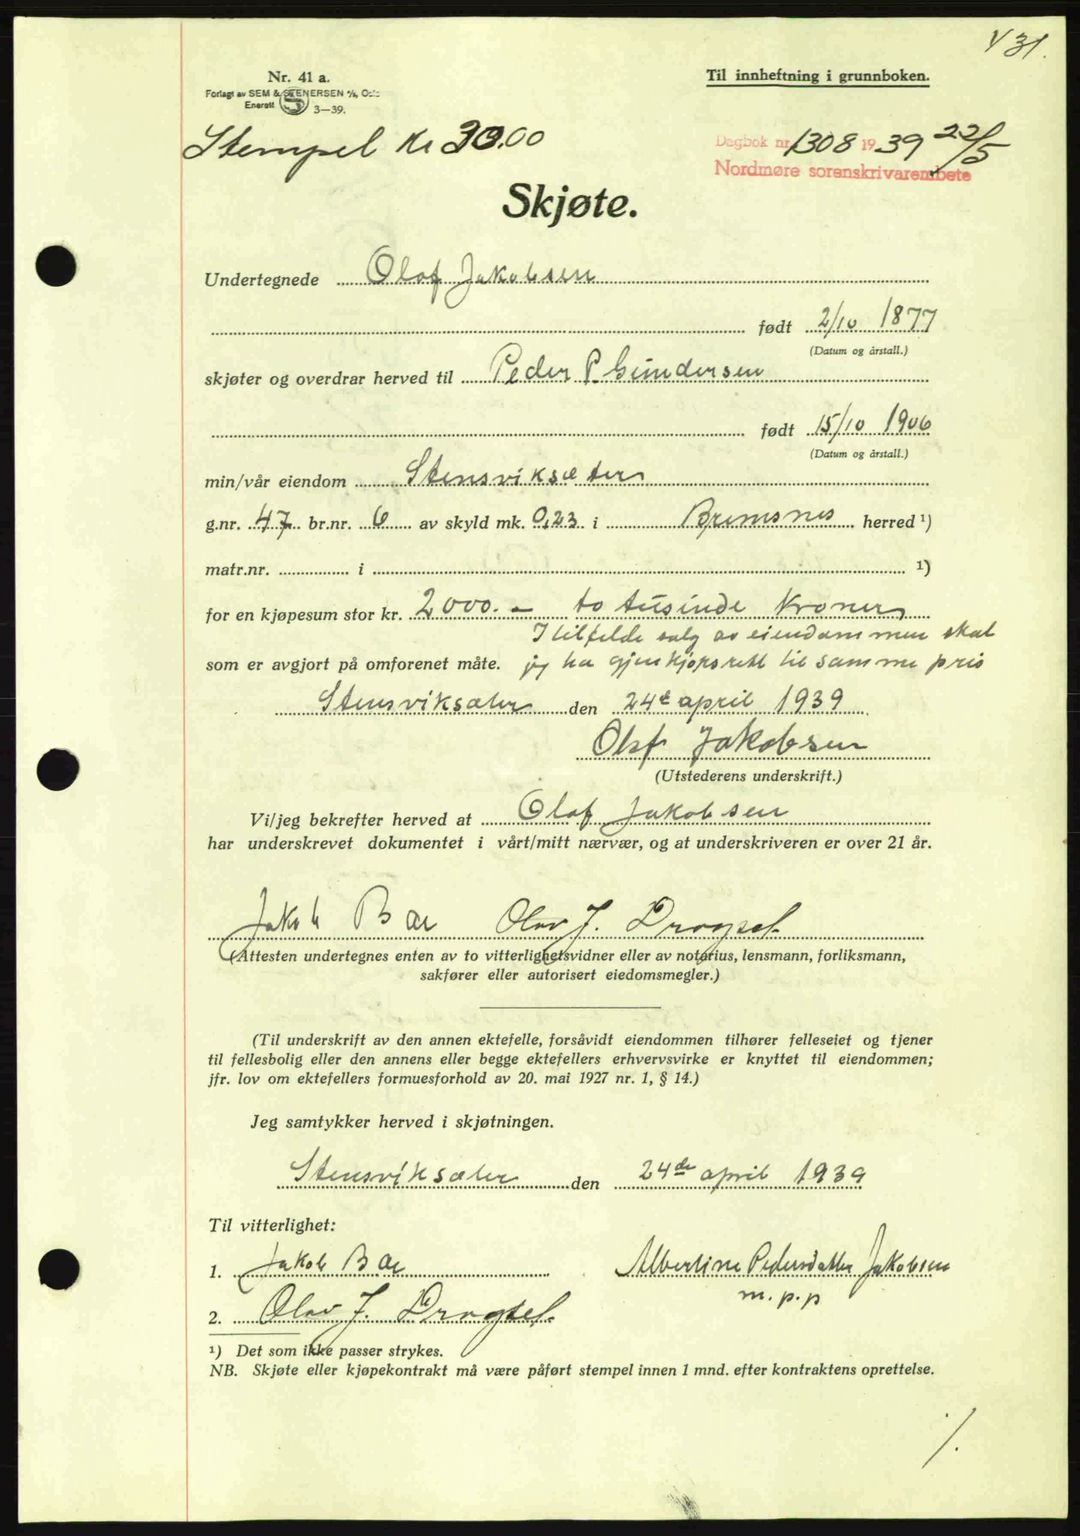 V 31.
Nr. 41 a.
Forlagt av SEM & STENERSEN A/S, Oslo
Enerett 3—39.
Til innheftning i grunnboken.
Stempel Kr 30.00
Dagbok nr. 1308 1939 22/5
Nordmøre sorenskrivarembete
Skjøte.
Undertegnede Olaf Jakobsen
født 2/10 1877
(Datum og årstall.)
skjøter og overdrar herved til Peder P. Gundersen
født 15/10 1906
(Datum og årstall.)
min/vår eiendom Stensviksæter
g.nr. 47 br.nr. 6 av skyld mk. 0,23 i Bremsnes herred ¹)
matr.nr. i ¹)
for en kjøpesum stor kr. 2000.- to tusinde Kroner
I tilfelde salg av eiendommen skal
som er avgjort på omforenet måte. jeg ha gjenkjøpsrett til samme pris
Stensviksæter den 24de april 1939
Olaf Jakobsen
(Utstederens underskrift.)
Vi/jeg bekrefter herved at Olaf Jakobsen
har underskrevet dokumentet i vårt/mitt nærvær, og at underskriveren er over 21 år.
Jakob Bae Olav J. Dragset
(Attesten undertegnes enten av to vitterlighetsvidner eller av notarius, lensmann, forliksmann,
sakfører eller autorisert eiedomsmegler.)
(Til underskrift av den annen ektefelle, forsåvidt eiendommen tilhører felleseiet og tjener
til fellesbolig eller den annens eller begge ektefellers erhvervsvirke er knyttet til eiendommen;
jfr. lov om ektefellers formuesforhold av 20. mai 1927 nr. 1, § 14.)
Jeg samtykker herved i skjøtningen.
Stensviksæter den 24de april 1939
Til vitterlighet:
1. Jakob Bae
Albertine Pedersdatter Jakobsen
m.p.p
2. Olav J. Dragset
¹) Det som ikke passer strykes.
NB. Skjøte eller kjøpekontrakt må være påført stempel innen 1 mnd. efter kontraktens oprettelse.